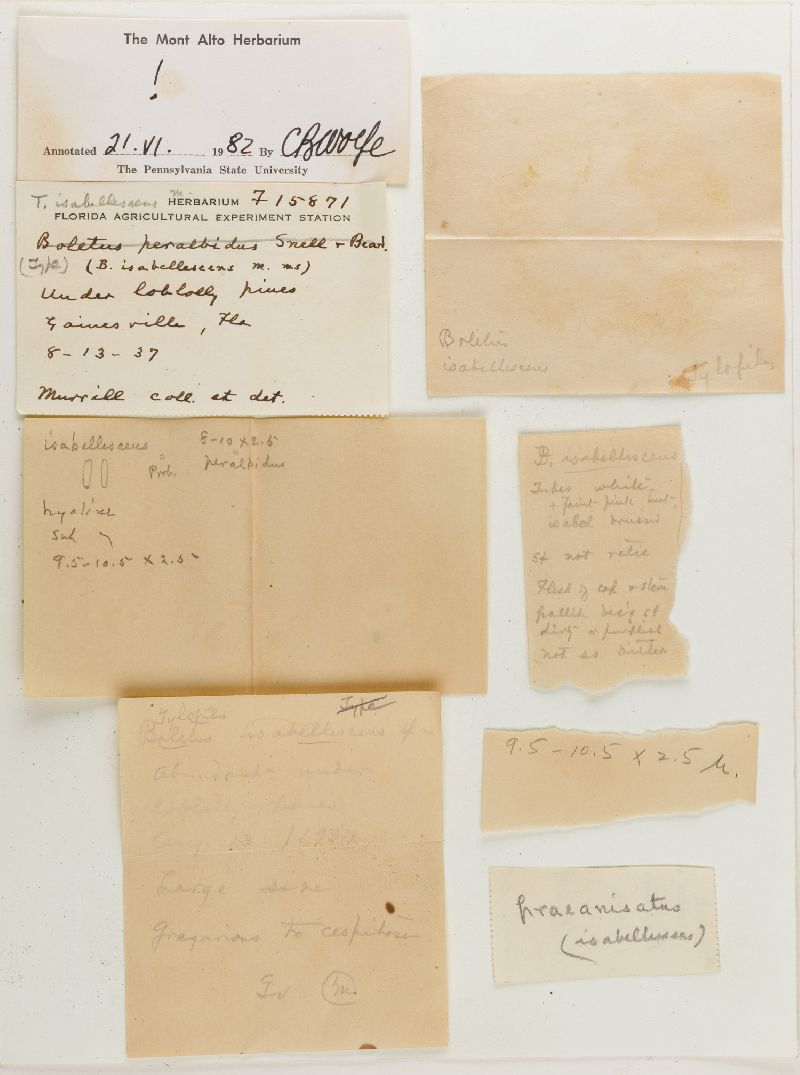 The Mont Alto Herbarium
!
Annotated 21.VI. 1982 By CBWolfe
The Pennsylvania State University
T. isabellescens m. HERBARIUM F 15871
FLORIDA AGRICULTURAL EXPERIMENT STATION
Boletus peralbidus Snell & Beard.
(Type) (B. isabellescens m. ms)
Under loblolly pines
Gainesville, Fla
8-13-37
Murrill coll. et det.
Boletus
isabellescens
Tylopilus
isabellescens 8-10 x 2.5
Prob. peralbidus
hyaline
smh
9.5-10.5 x 2.5
B. isabellescens
Tubes white
+ faint pink tint,
isabel bruised
St not retic
Flesh of cap & stem
pallid
dirty or purplish
not so bitter
Tylopilus Type
Boletus isabellescens
abundant under
loblolly pines
Aug. 13 1937
Large size
Gregarious to cespitose
Gv m.
9.5-10.5 x 2.5 µ.
praeanisatus
(isabellescens)